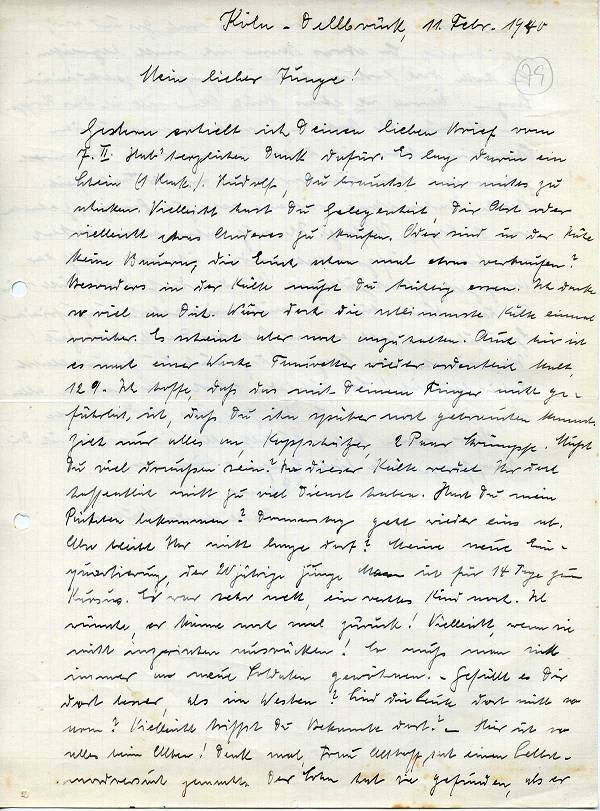 Köln-Dellbrück, 11. Febr. 1940
99
Mein lieber Junge!
Gestern erhielt ich Deinen lieben Brief vom
7. II. Hab' herzlichen Dank dafür. Es lag darin ein
Schein (1 Rm.). Rudolf, Du brauchst mir nichts zu
schicken. Vielleicht hast Du Gelegenheit, Dir Obst oder
vielleicht etwas Anderes zu kaufen. Oder sind in der Nähe
keine Bauern, die Euch schon mal etwas verkaufen?
Besonders in der Kälte müßt Du tüchtig essen. Ich denke
so viel an Dich. Wäre doch die schlimmste Kälte einmal
vorüber. Es scheint aber noch anzuhalten. Auch hier ist
es nach einer Woche Tauwetter wieder ordentlich kalt,
12°. Ich hoffe, daß das mit Deinem Finger nicht ge-
fährlich ist, daß Du ihn später noch gebrauchen kannst.
Zieh nur alles an, Kopfschützer, 2 Paar Strümpfe. Müßt
Du viel draußen sein? In dieser Kälte werdet Ihr doch
hoffentlich nicht zu viel Dienst haben. Hast Du mein
Päckchen bekommen? Donnerstag geht wieder eins ab.
Aber bleibt Ihr nicht lange dort? Meine neue Ein-
quartierung, der 20jährige Junge ist für 14 Tage zum
Kursus. Er war sehr nett, ein rechtes Kind noch. Ich
wünschte, er käme noch mal zurück! Vielleicht, wenn sie
nicht inzwischen ausrücken! So muß man sich
immer an neue Soldaten gewöhnen. - Gefällt es Dir
dort besser, als im Westen? Sind die Leute dort nicht so
arm? Vielleicht triffst Du Bekannte dort? - Hier ist so
alles beim Alten! Denk mal, Frau hat einen Selbst-
mordversuch gemacht. Der Sohn hat sie gefunden, als er